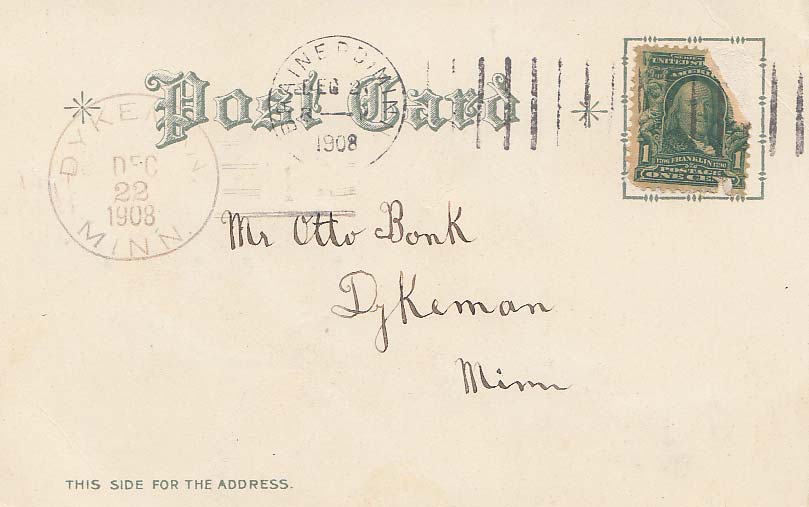 Post Card
BRAINERD, MINN.
DEC 2
1908
DYKEMAN
DEC
22
1908
MINN.
SERIES 1902
UNITED STATES
AMERICA
1706 FRANKLIN 1790
1 POSTAGE
ONE CENT
Mr Otto Bonk
Dykeman
Minn
THIS SIDE FOR THE ADDRESS.